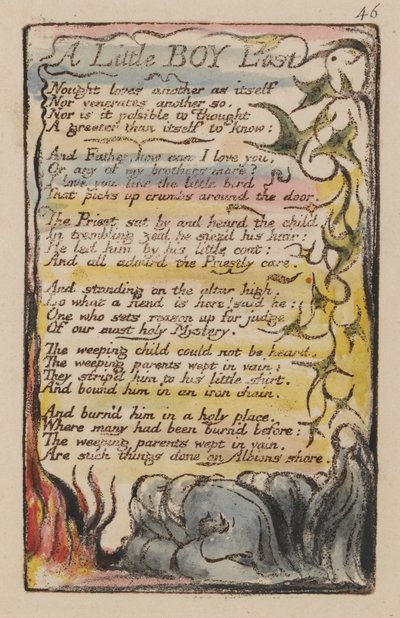 46
A Little BOY Lost
Nought loves another as itself
Nor venerates another so.
Nor is it possible to Thought
A greater than itself to know:
And Father, how can I love you,
Or any of my brothers more?
I love you like the little bird
That picks up crumbs around the door.
The Priest sat by and heard the child.
In trembling zeal he siez'd his hair:
He led him by his little coat:
And all admir'd the Priestly care.
And standing on the altar high.
Lo what a fiend is here! said he:
One who sets reason up for judge
Of our most holy Mystery.
The weeping child could not be heard.
The weeping parents wept in vain:
They strip'd him to his little shirt.
And bound him in an iron chain.
And burn'd him in a holy place.
Where many had been burn'd before:
The weeping parents wept in vain.
Are such things done on Albions shore.